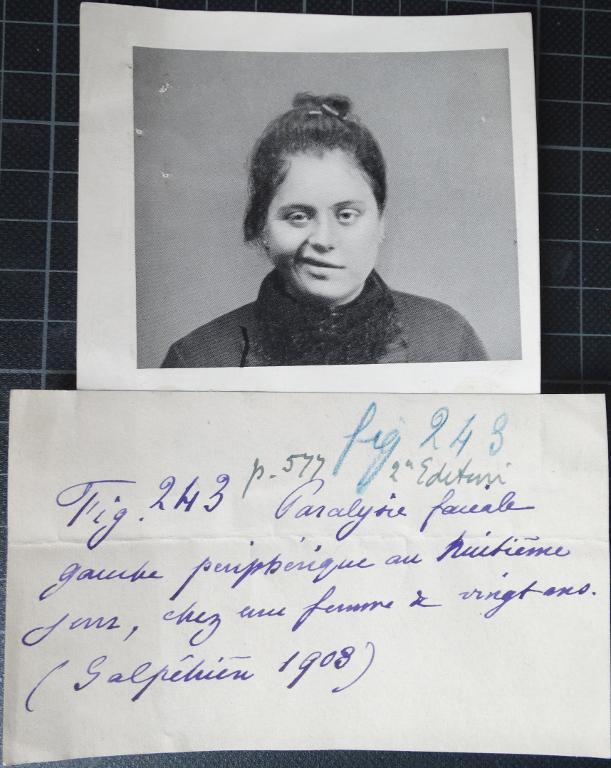 fig 243
p. 577 2e Edition
Fig. 243 Paralysie faciale
gauche périphérique au huitième
jour, chez une femme de vingt ans.
(Salpêtrière 1903)